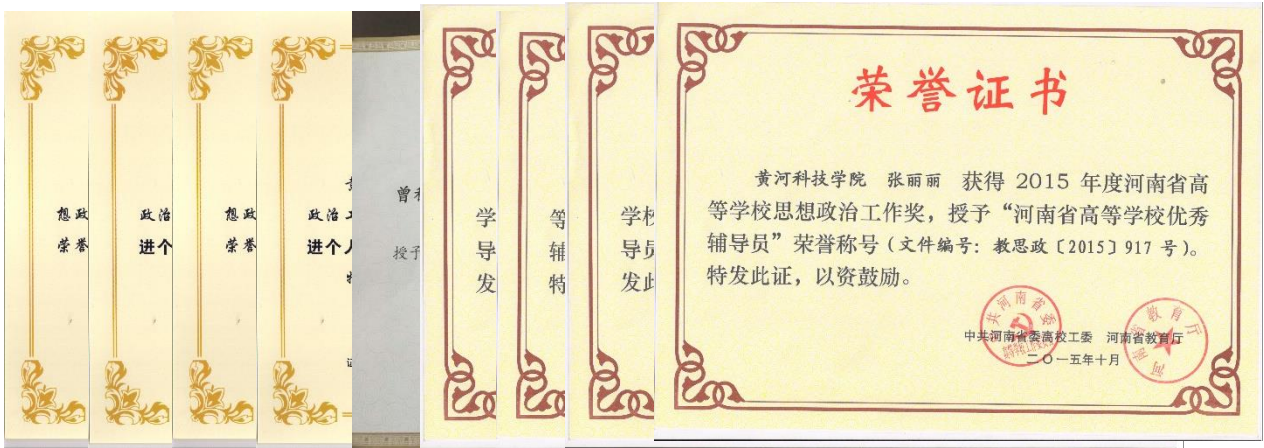 想政
荣誉
政治
进个
想政
荣誉
政治工
进个人
特
证
曾
授予
学
导
发
等
辅
特
学校
导员
发此
荣誉证书
黄河科技学院 张丽丽 获得 2015 年度河南省高
等学校思想政治工作奖，授予“河南省高等学校优秀
辅导员”荣誉称号（文件编号：教思政〔2015〕917 号）。
特发此证，以资鼓励。
中共河南省委高校工委 河南省教育厅
二〇一五年十月
河南省教育厅